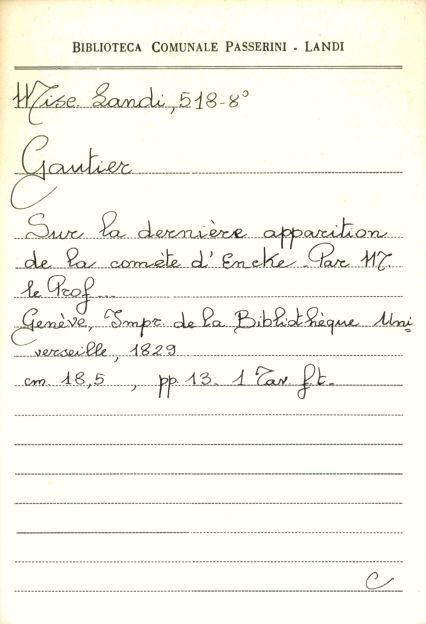 BIBLIOTECA COMUNALE PASSERINI - LANDI
Misc. Landi, 518-8°
Gautier
Sur la dernière apparition
de la comète d'Encke. Par M.
le Prof...
Genève, Impr. de la Bibliothèque Uni=
verseille, 1829
cm. 18,5 , pp. 13. 1 Tav. f.t.
C